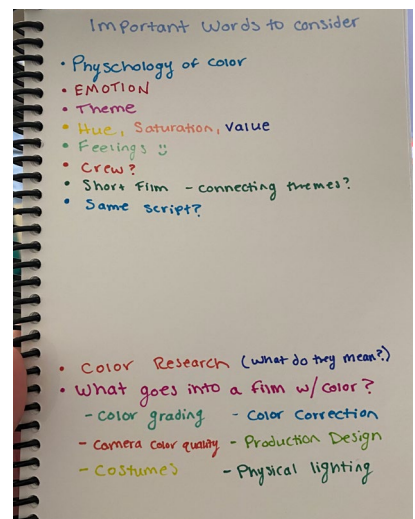 Important Words to consider
• Physchology of color
• EMOTION
• Theme
• Hue, Saturation, Value
• Feelings :)
• Crew?
• Short Film - connecting themes?
• Same script?
• Color Research (what do they mean?)
• What goes into a film w/color?
- Color grading - Color Correction
- Camera color quality - Production Design
- Costumes - Physical lighting